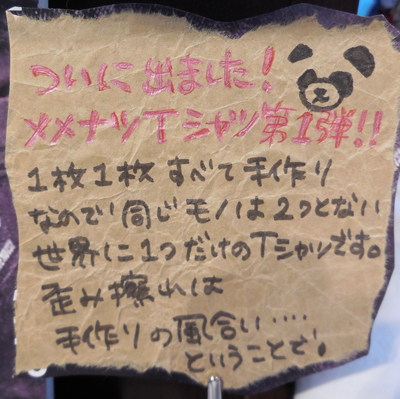 ついに出ました!
メメナツTシャツ第1弾!!
1枚1枚すべて手作り
なので同じモノは2つとない
世界に1つだけのTシャツです。
歪み擦れは
手作りの風合い‥‥
ということで。